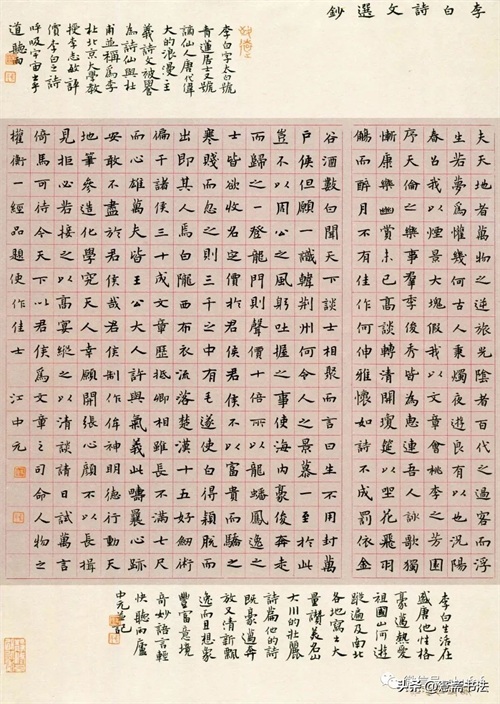 李白詩文選鈔
李白字太白號
青蓮居士又號
謫仙人唐代偉
大的浪漫主
義詩文被譽
為詩仙與杜
甫並稱為李
杜北京大學教
授李志敏評
價李白之詩
呼吸宇宙出乎
道聽雨
夫天地者萬物之逆旅光陰者百代之過客而浮
生若夢為懽幾何古人秉燭夜遊良有以也況陽
春召我以煙景大塊假我以文章會桃李之芳園
序天倫之樂事羣季俊秀皆為惠連吾人詠歌獨
慚康樂幽賞未已高談轉清開瓊筵以坐花飛羽
觴而醉月不有佳作何伸雅懷如詩不成罰依金
谷酒數白聞天下談士相聚而言曰生不用封萬
戶侯但願一識韓荊州何令人之景慕一至於此
豈不以周公之風躬吐握之事使海內豪俊奔走
而歸之一登龍門則聲價十倍所以龍蟠鳳逸之
士皆欲收名定價於君侯君侯不以富貴而驕之
寒賤而忽之則三千之中有毛遂使白得穎脫而
出即其人焉白隴西布衣流落楚漢十五好劍術
偏干諸侯三十成文章歷抵卿相雖長不滿七尺
而心雄萬夫皆王公大人許與氣義此疇曩心跡
安敢不盡於君侯哉君侯制作侔神明德行動天
地筆參造化學究天人幸願開張心顏不以長揖
見拒必若接之以高宴縱之以清談請日試萬言
倚馬可待今天下以君侯為文章之司命人物之
權衡一經品題便作佳士 江中元
李白生活在
盛唐他性格
豪邁熱愛
祖國山河遊
蹤遍及南北
各地寫出大
量讚美名山
大川的壯麗
詩篇他的詩
既豪邁奔
放又清新飄
逸而且想象
豐富意境
奇妙語言輕
快聽雨廬
中元並記
头条@澄斋书法